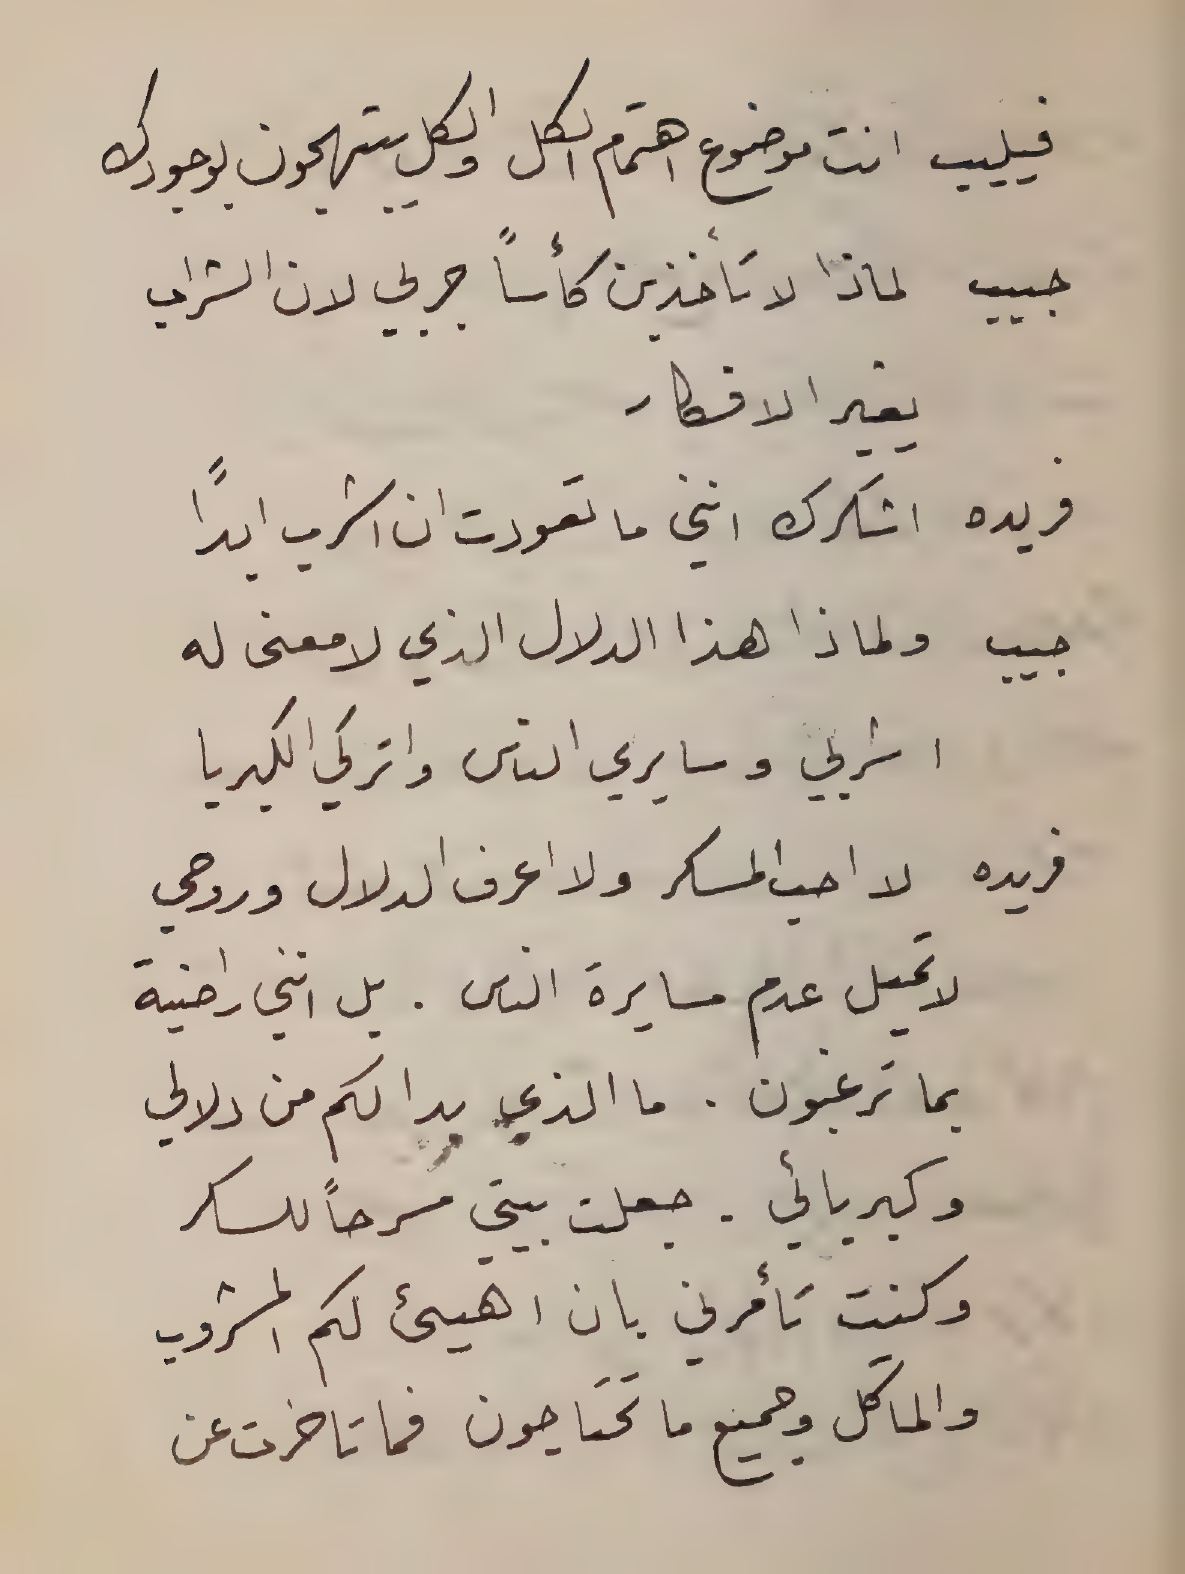 فيليب انت موضوع اهتمام الكل والكل يبتهجون بوجودك
حبيب لماذا لا تأخذين كأساً جربي لان الشراب
يغير الافكار
فريده اشكرك انني ما تعودت ان اشرب ابداً
حبيب ولماذا هذا الدلال الذي لا معنى له
اشربي وسايري الناس واتركي الكبريا
فريده لا احب المسكر ولا اعرف الدلال وروحي
لا تحمل عدم مسايرة الناس . بل انني راضية
بما ترغبون . ما الذي بدا لكم من دلالي
وكبريائي . جعلت بيتي مسرحاً للسكر
وكنت تأمرني بان اهيئ لكم المشروب
والماكل وجميع ما تحتاجون فما تاخرت عن